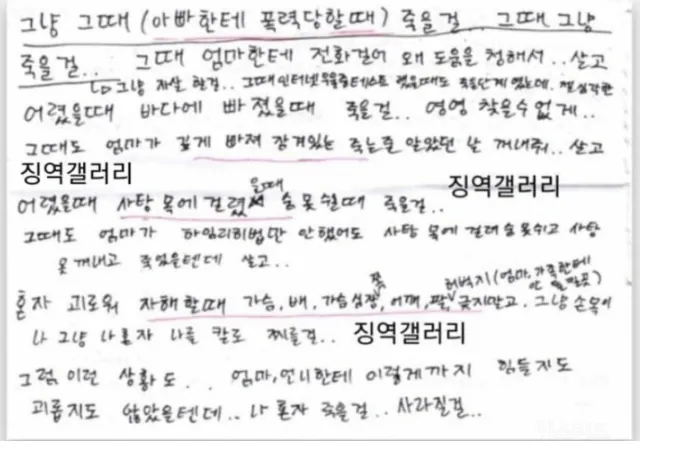 그냥 그때 (아빠한테 폭력당할때) 죽을걸... 그때 그냥
죽을걸.. 그때 엄마한테 전화걸어 왜 도움을 청해서.. 살고
그냥 자살 할걸.. 그때 인터넷 우울증테스트 했을때도
어렸을때 바다에 빠졌을때 죽을걸.. 영영 찾을수 없게..
그때도 엄마가 깊게 빠져 잠겨있는 죽는줄 알았던 날 꺼내줘.. 살고
징역갤러리
징역갤러리
어렸을때 사탕 목에 걸렸을때 숨 못쉴때 죽을걸..
그때도 엄마가 하임리히법만 안했어도 사탕 목에 걸려 숨 못쉬고 사탕
못 꺼내고 죽었을텐데 살고..
혼자 괴로워 자해할때 가슴, 배, 가슴심장쪽, 어깨, 팔, 허벅지(엄마, 가족한테 안 곳) 긋지말고. 그냥 손목이
나 그냥 나 혼자 나를 칼로 찌를걸..
징역갤러리
그럼 이런 상황도.. 엄마, 언니한테 이렇게까지 힘들지도
괴롭지도 않았을텐데.. 나 혼자 죽을걸.. 사라질걸..